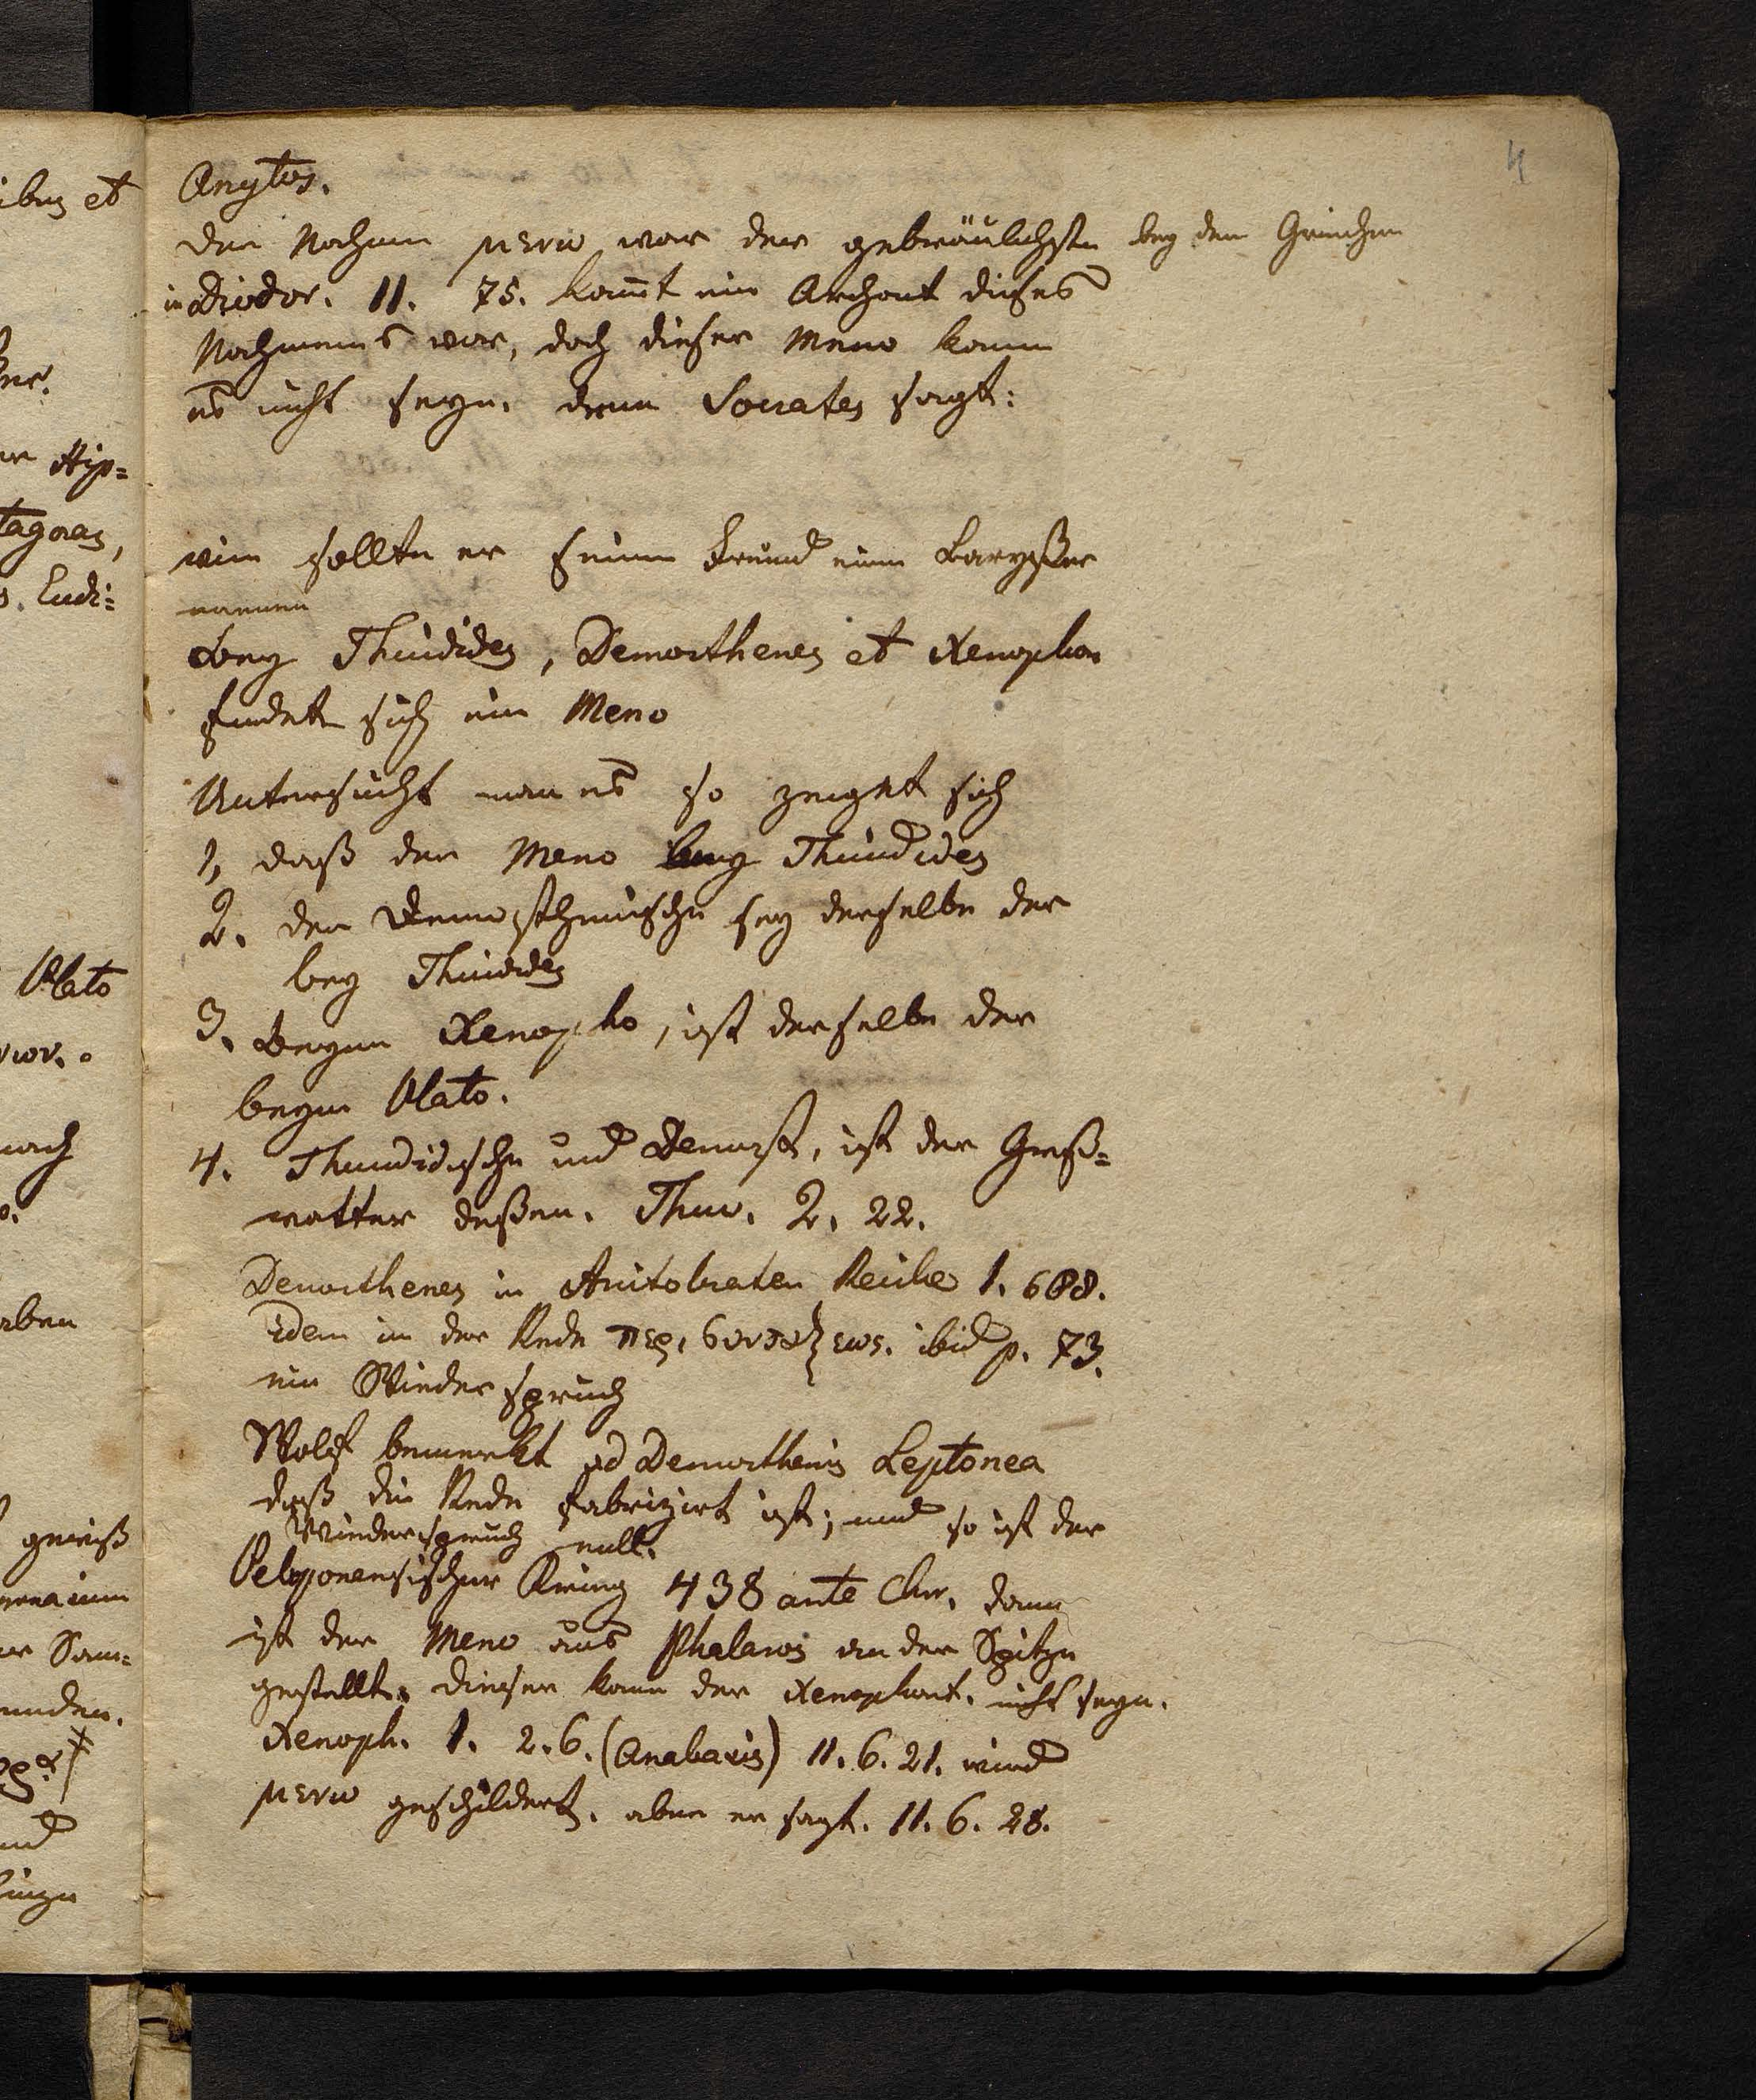 4
Anytos.
Der Nahmen μενω war der gebräulichste bey den Griechen
in Diodor. 11. 75. kom̄t ein Archont dieses
Nahmens vor, doch dieser Meno kann
es nicht seyn. denn Socrates sagt:
wie sollte er seinen Freund einen Laryßer
nennen
Bey Thucidides, Demosthenes et Xenophon
findet sich ein Meno
Untersucht man es so zeiget sich
1, daß der Meno bey Thucidides
2. der Demosthenische sey derselbe der
bey Thucidides
3. Beym Xenopho, ist derselbe der
beym Plato.
4. Thucidische und Demost. ist der Groß=
vatter deßen. Thuc. 2. 22.
Demosthenes in Aristokraten Reiske 1. 688.
Idem in der Rede περι συνταξεως. ibid p. 73.
ein Wiederspruch
Wolf bemerkt ad Demosthenis Leptonea
daß die Rede fabrizirt ist; und so ist der
Wiederspruch null.
Peloponensischer Krieg 438 ante Chr. dann
ist der Meno aus Phalaros an der Spitze
gestellt. dieser kann der Xenophont. nicht seyn.
Xenoph. 1. 2. 6. (Anabasis) 11. 6. 21. wird
μενω geschildert. aber er sagt. 11. 6. 28.